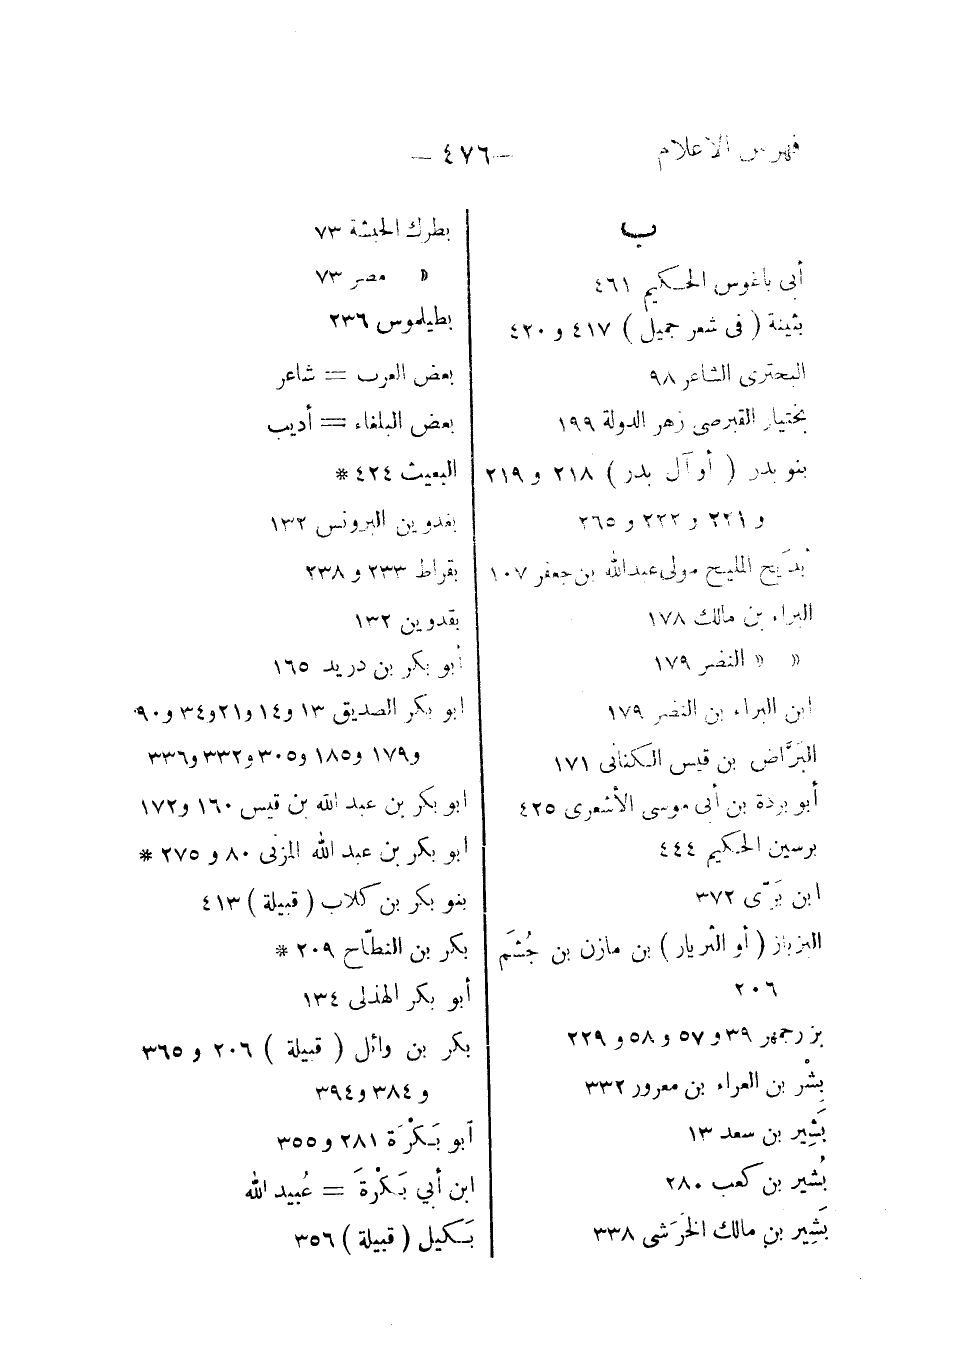 فهرس الاعلام
— ٤٧٦ —
ب
أبى باغوس الحكيم ٤٦١
بثينة ( فى شعر جميل ) ٤١٧ و ٤٢٠
البحترى الشاعر ٩٨
بختيار القبرصى زهر الدولة ١٩٩
بنو بدر ( أو آل بدر ) ٢١٨ و ٢١٩
و ٢٢١ و ٢٢٢ و ٢٦٥
بُدَيح المليح مولى عبدالله بن جعفر ١٠٧
البراء بن مالك ١٧٨
« « النضر ١٧٩
ابن البراء بن النضر ١٧٩
البَرَّاض بن قيس الكنانى ١٧١
أبو بردة بن أبى موسى الأشعرى ٤٢٥
برسين الحكيم ٤٤٤
ابن بَرّى ٣٧٢
البزباز ( أو البربار ) بن مازن بن جُشَم
٢٠٦
بزرجمهر ٣٩ و ٥٧ و ٥٨ و ٢٢٩
بِشْر بن العراء بن معرور ٣٣٢
بَشِير بن سعد ١٣
بُشير بن كعب ٢٨٠
بَشِير بن مالك الخَرَشى ٣٣٨
بطرك الحبشة ٧٣
« مصر ٧٣
بطيلموس ٢٣٦
بعض العرب = شاعر
بعض البلغاء = أديب
البعيث ٤٢٤ *
بغدوين البرونس ١٣٢
بقراط ٢٣٣ و ٢٣٨
بقدوين ١٣٢
أبو بكر بن دريد ١٦٥
ابو بكر الصديق ١٣ و١٤ و٢١ و٣٤ و٩٠
و١٧٩ و١٨٥ و٣٠٥ و٣٣٢ و٣٣٦
ابو بكر بن عبد الله بن قيس ١٦٠ و١٧٢
ابو بكر بن عبد الله المزنى ٨٠ و ٢٧٥ *
بنو بكر بن كلاب ( قبيلة ) ٤١٣
بكر بن النطّاح ٢٠٩ *
أبو بكر الهذلى ١٣٤
بكر بن وائل ( قبيلة ) ٢٠٦ و ٣٦٥
و ٣٨٤ و ٣٩٤
أبو بَكْرَة ٢٨١ و ٣٥٥
ابن أبي بَكْرةَ = عُبيد الله
بَكيل ( قبيلة ) ٣٥٦